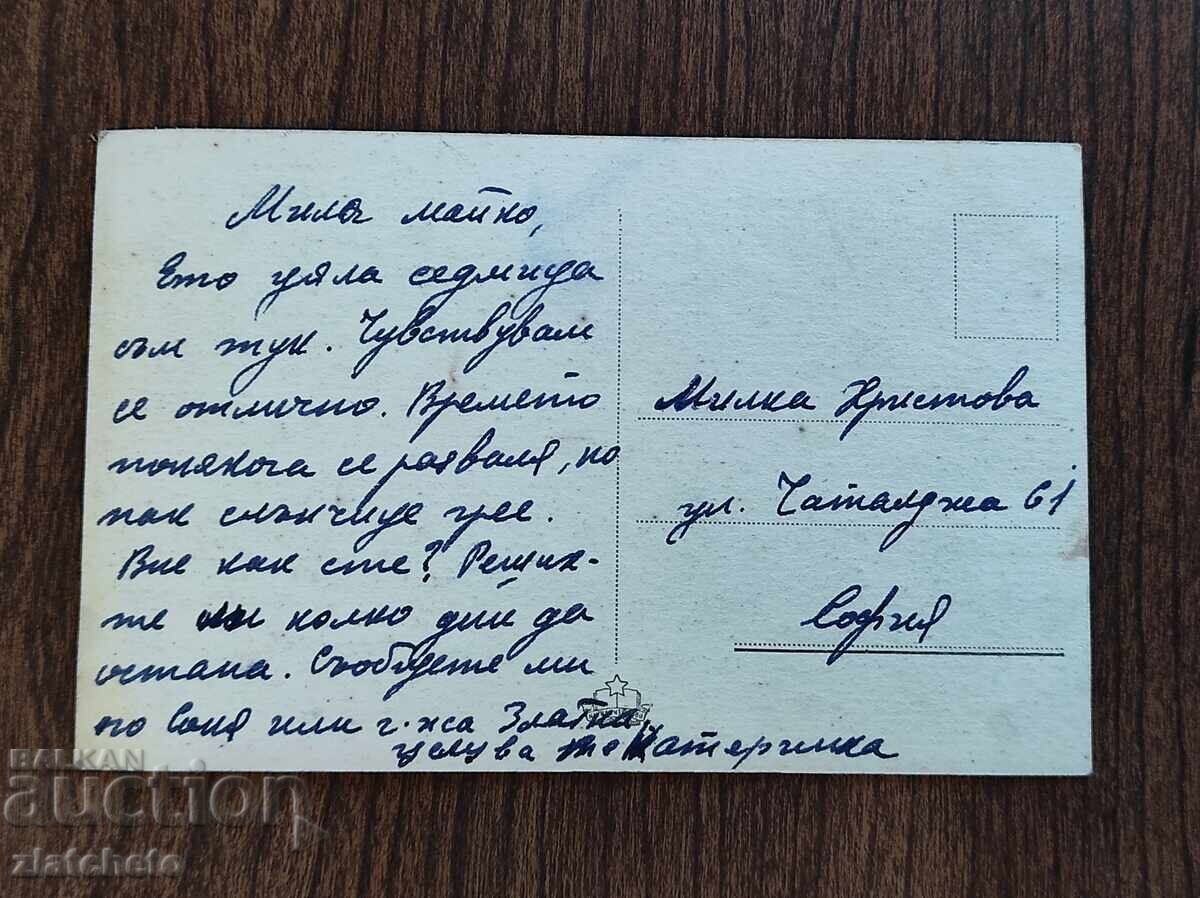 Мила майко,
Ето цяла седмица
съм тук. Чувствувам
се отлично. Времето
понякога се разваля, но
пак слънчице грее.
Вие как сте? Реших-
те ли колко дни да
остана. Съобщете ми
по Соня или г-жа Златка.
целува те Катеринка
Милка Христова
ул. Чаталджа 61
София
BALKAN
auction
zlatcheto